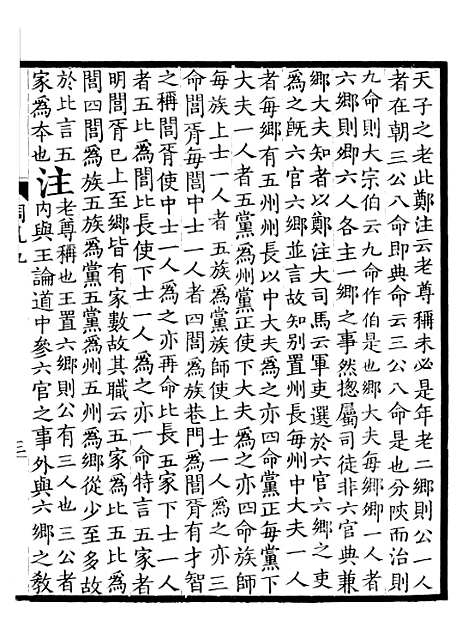 天子之老此鄭注云老尊稱未必是年老二鄉則公一人
者在朝三公八命即典命云三公八命是也分陝而治則
九命則大宗伯云九命作伯是也鄉大夫每鄉鄉一人者
六鄉則鄉六人各主一鄉之事然揔屬司徒非六官典兼
鄉大夫知者以鄭注大司馬云軍吏選於六官六鄉之吏
爲之旣六官六鄉並言故知別置州長每州中大夫一人
者每鄉有五州州長以中大夫爲之亦四命黨正每黨下
大夫一人者五黨爲州黨正使下大夫爲之亦四命族師
每族上士一人者五族爲黨族師使上士一人爲之亦三
命閭胥每閭中士一人者四閭爲族巷門爲閭胥有才智
之稱閭胥使中士一人爲之亦再命比長五家下士一人
者五比爲閭比長使下士一人爲之亦一命特言五家者
明閭胥已上至鄉皆有家數故其職云五家爲比五比爲
閭四閭爲族五族爲黨五黨爲州五州爲鄉從少至多故
於比言五
家爲夲也
注
老尊稱也王置六鄉則公有三人也三公者
內與王論道中參六官之事外與六鄉之敎
三